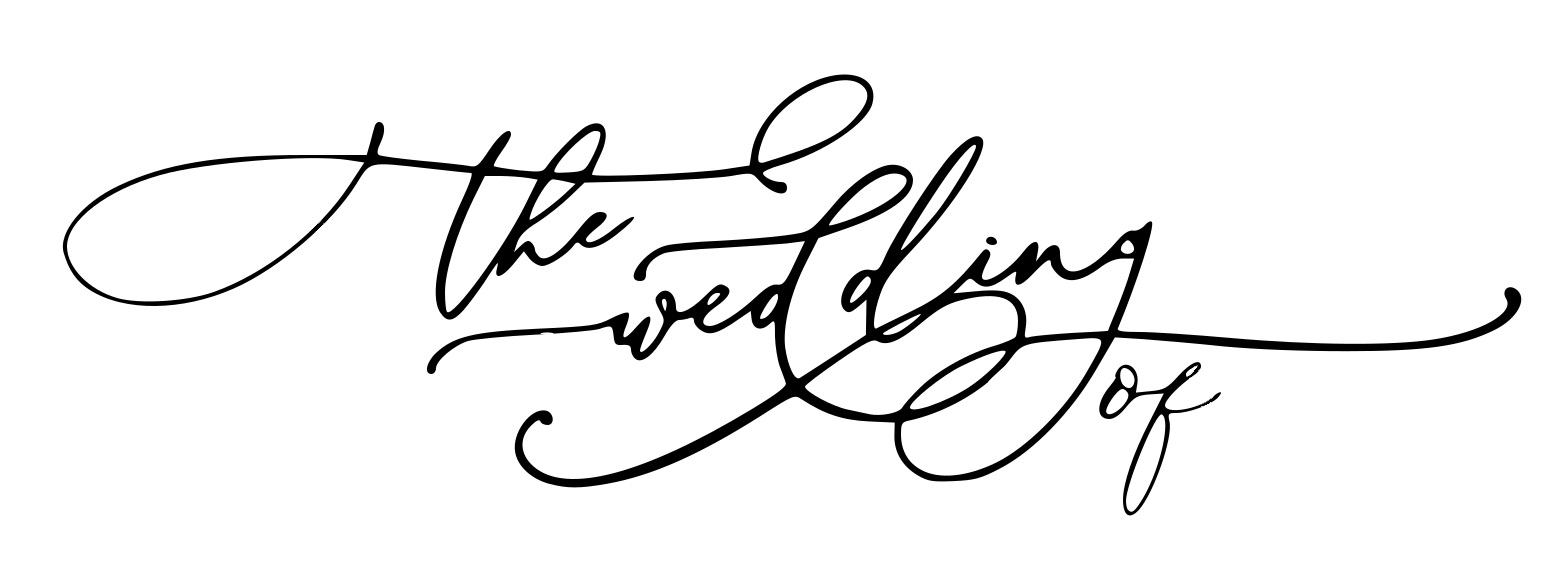 the
wedding
of